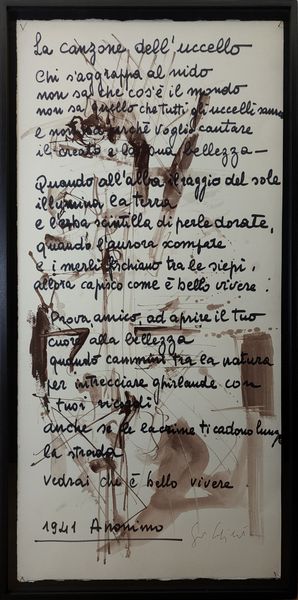 La canzone dell'uccello
Chi s'aggrappa al nido
non sa che cos'è il mondo
non sa quello che tutti gli uccelli sanno
e non sa perché voglio cantare
il creato e la sua bellezza —
Quando all'alba il raggio del sole
illumina la terra
e l'erba scintilla di perle dorate,
quando l'aurora scompare
e i merli fischiano tra le siepi,
allora capisco come è bello vivere.
Prova, amico, ad aprire il tuo
cuore alla bellezza
quando cammini tra la natura
per intrecciare ghirlande con
i tuoi ricordi
anche se le lacrime ti cadono lungo
la strada
vedrai che è bello vivere
1941 Anonimo